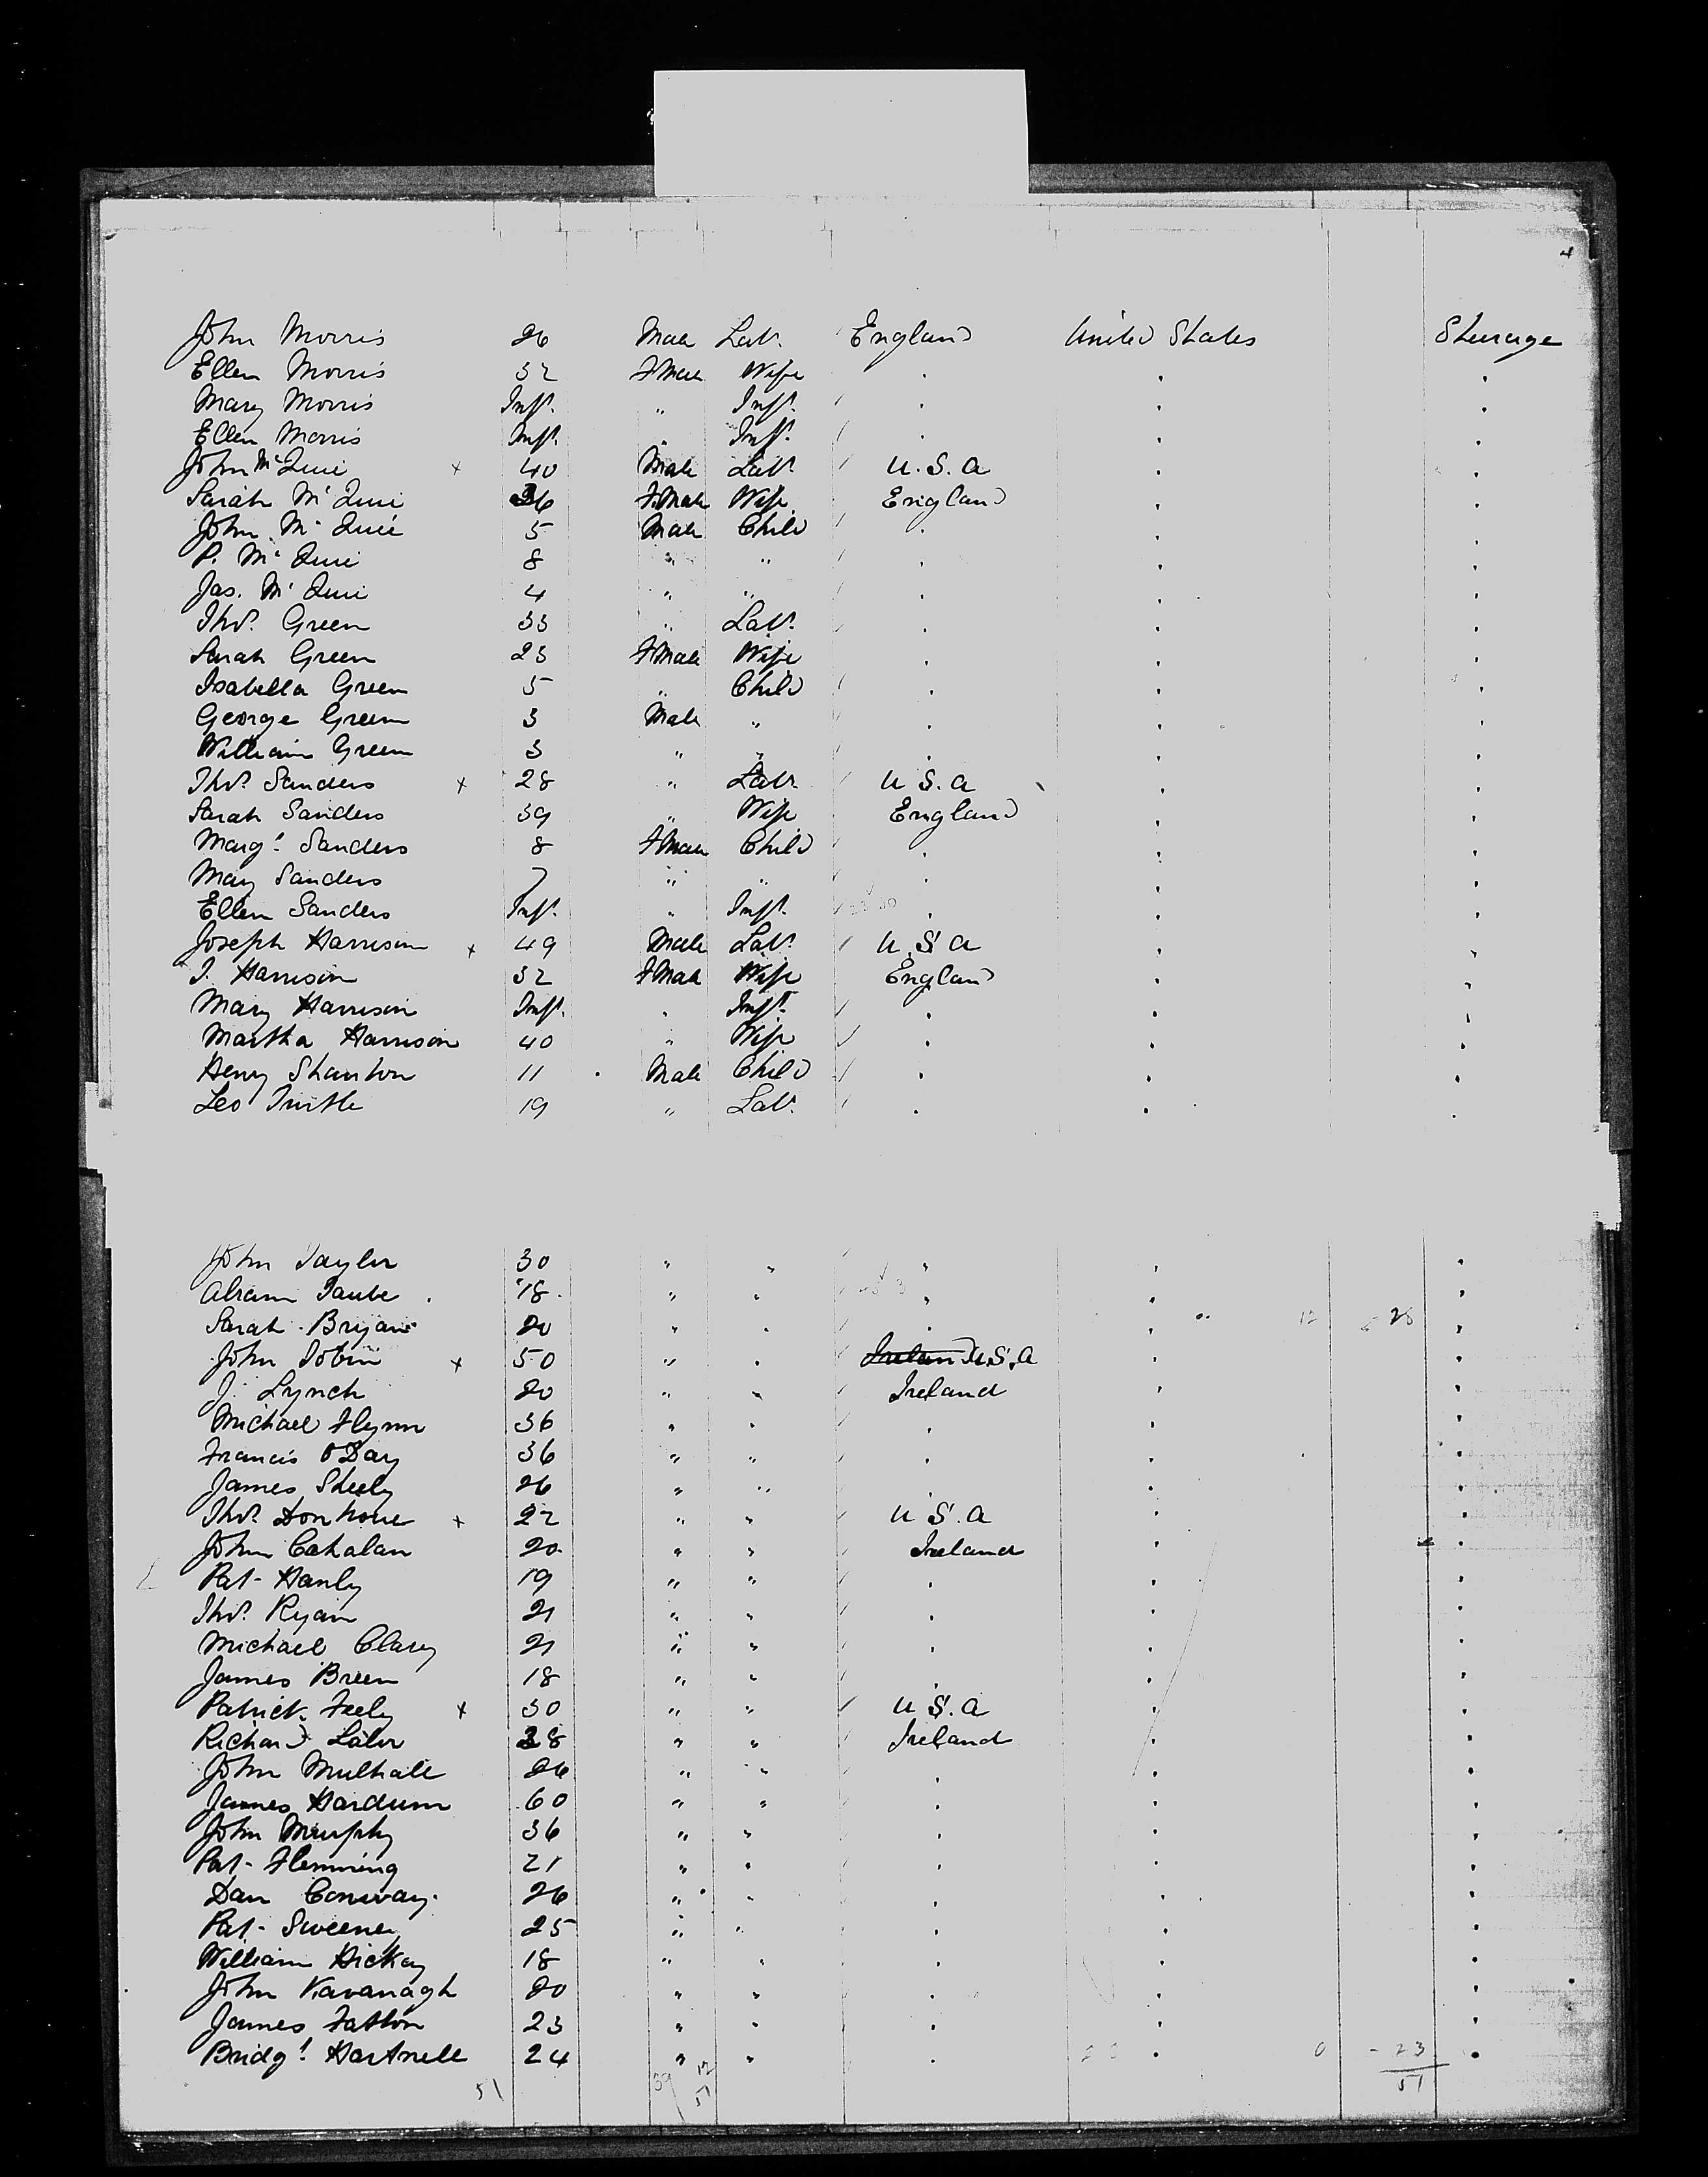 4
John Morris 26 Male Lab. England United States Steerage
Ellen Morris 32 FMale Wife . . .
Mary Morris Inft. " Inft. . . .
Ellen Morris Inft. " Inft. . . .
John McQuie x 40 Male Lab. U.S.A . .
Sarah McQuie 36 FMale Wife England . .
John McQuie 5 Male Child . . .
P. McQuie 8 " " . . .
Jas. McQuie 4 " " . . .
Thos. Green 33 " Lab. . . .
Sarah Green 23 FMale Wife . . .
Isabella Green 5 " Child . . .
George Green 3 Male " . . .
William Green 3 " " . . .
Thos. Sanders x 28 " Lab. U.S.A . .
Sarah Sanders 39 " Wife England . .
Margt. Sanders 8 FMale Child . . .
Mary Sanders 7 " " . . .
Ellen Sanders Inft. " Inft. . . .
Joseph Harrison x 49 Male Lab. U.S.A . .
J. Harrison 32 FMale Wife England . .
Mary Harrison Inft. " Inft. . . .
Martha Harrison 40 " Wife . . .
Henry Shanton 11 Male Child . . .
Leo 19 " Lab. . . .
John Taylor 30 " " . . .
Abram Taube 18 " " . . .
Sarah Bryan 20 " " . . 12 28 .
John Tobin x 50 " " Ireland U.S.A . .
J. Lynch 20 " " Ireland . .
Michael Flynn 36 " " . . .
Francis O'Day 36 " " . . .
James Sheely 26 " " . . .
Thos. Donhoue x 22 " " U.S.A . .
John Cahalan 20 " " Ireland . .
Pat- Hanly 19 " " . . .
Thos. Ryan 21 " " . . .
Michael Clary 21 " " . . .
James Breen 18 " " . . .
Patrick Feely x 30 " " U.S.A . .
Richard Lalor 38 " " Ireland . .
John Mulhall 26 " " . . .
James Hardum 60 " " . . .
John Murphy 36 " " . . .
Pat- Flemming 21 " " . . .
Dan Conway 26 " " . . .
Pat- Sweeney 25 " " . . .
William Hickey 18 " " . . .
John Kavanagh 20 " " . . .
James Fatton 23 " " . . .
Bridgt. Hartnell 24 " " . . 0 - 23 .
51 39 12 51
51